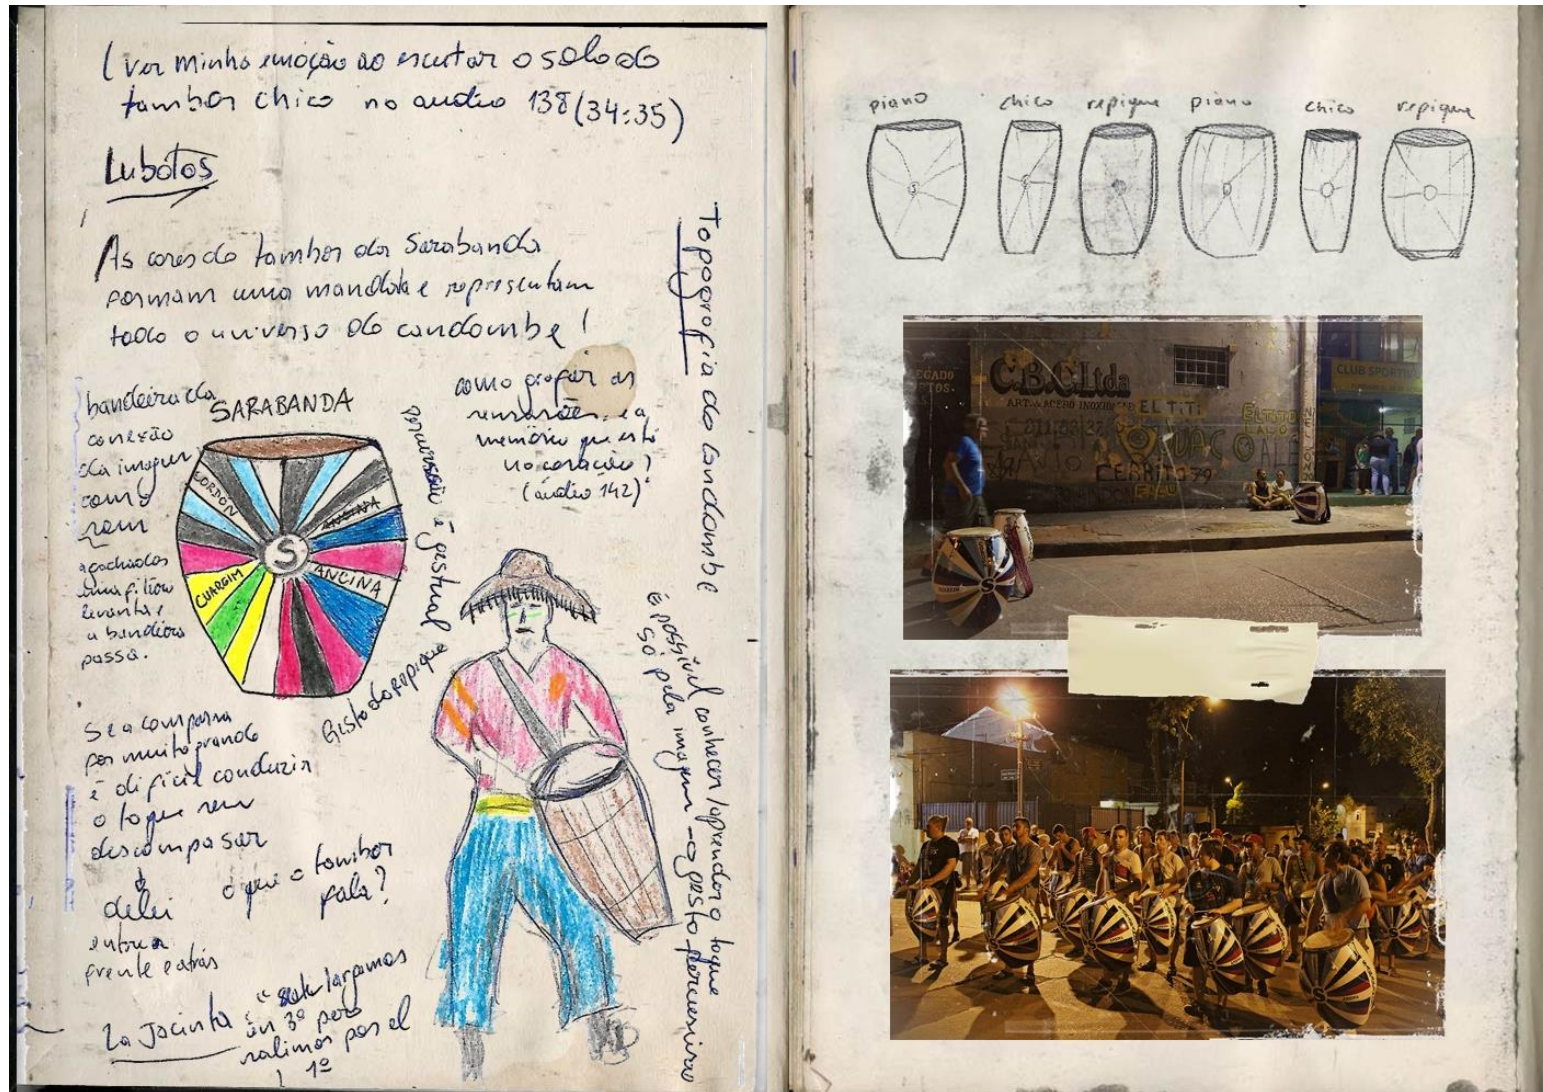 (ver minha emoção ao escutar o solo do
tambor chico no audio 138 (34:35)
Lubolos
As cores do tambor da Sarabanda
formam uma mandala e representam
todo o universo do candombe!
bandeira da
conexão
da imagem
com o
som
agachados
uma fila
levanta e
a bandeira
passa.
SARABANDA
CORDON
ANCINA
ANCINA
CUARGIM
S
como grafar as
sensações e a
memória que está
no coração?
(áudio 142)
percussão é gestual
Gesto do repique
Topografia do candombe
É possível conhecer/aprender o toque
só pela imagem - o gesto percussivo
Se a comparsa
for muito grande
é difícil conduzir
o toque sem
descompassar
delei
entre a
frente e atrás
o que o tambor
fala?
La Jacinta
"largamos
un 3º pero
salimos por el
1º
piano chico repique piano chico repique
C.B.C. Ltda
ART. ACERO INOXIDABLE
EL TITI
CUAC
CERRITO 79
CLUB SPORTIV